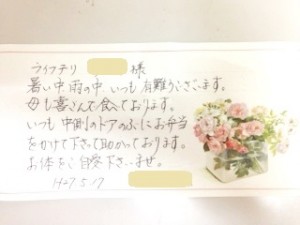 ライフデリ 様
暑い中 雨の中 いつも 有難うございます。
母も喜こんで食べております。
いつも 中側のドアのふにお弁当
をかけて下さって助かっております。
お体をご自愛下さいませ。
H27.5.17